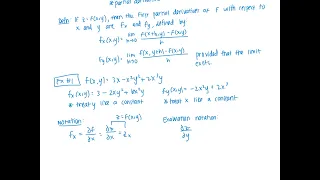 *partial derivatives
Defn: If z=f(x,y), then the first partial derivatives of f with respect
to x and y are fx and fy, defined by
fx(x,y) = lim h→0 f(x+h,y)-f(x,y) / h
fy(x,y) = lim h→0 f(x,y+h)-f(x,y) / h provided that the limit exists.
Ex #1 f(x,y) = 3x - x²y² + 2x³y
fx(x,y) = 3 - 2xy² + 6x²y fy(x,y) = -2x²y + 2x³
*treat y like a constant *treat x like a constant
Notation: z=f(x,y) Evaluation notation:
fx = ∂f/∂x = ∂z/∂x = zx ∂z/∂y